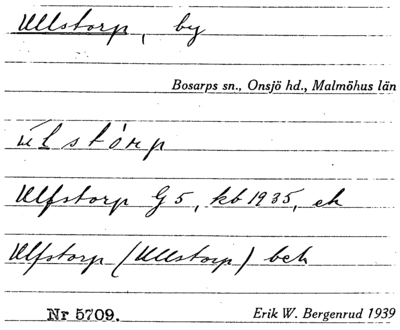 Ullstorp, by
Bosarps sn., Onsjö hd., Malmöhus län
úlstòrp
Ulfstorp G5, kb 1935, ek
Ulfstorp (Ullstorp) bek
Nr 5709. Erik W. Bergenrud 1939